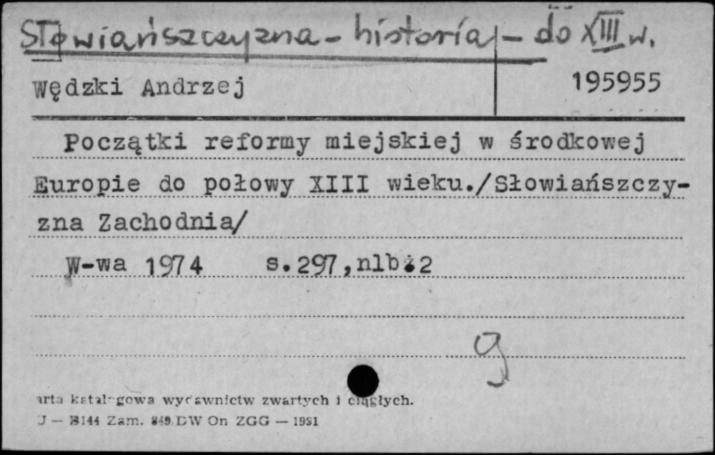 Słowiańszczyzna - historia - do XIII w.
Wędzki Andrzej 195955
Początki reformy miejskiej w środkowej
Europie do połowy XIII wieku./Słowiańszczy-
zna Zachodnia/
W-wa 1974 s.297,nlb.2
g
arta katalogowa wydawnictw zwartych i ciągłych.
J — B144 Zam. 849 DW On ZGG — 1981